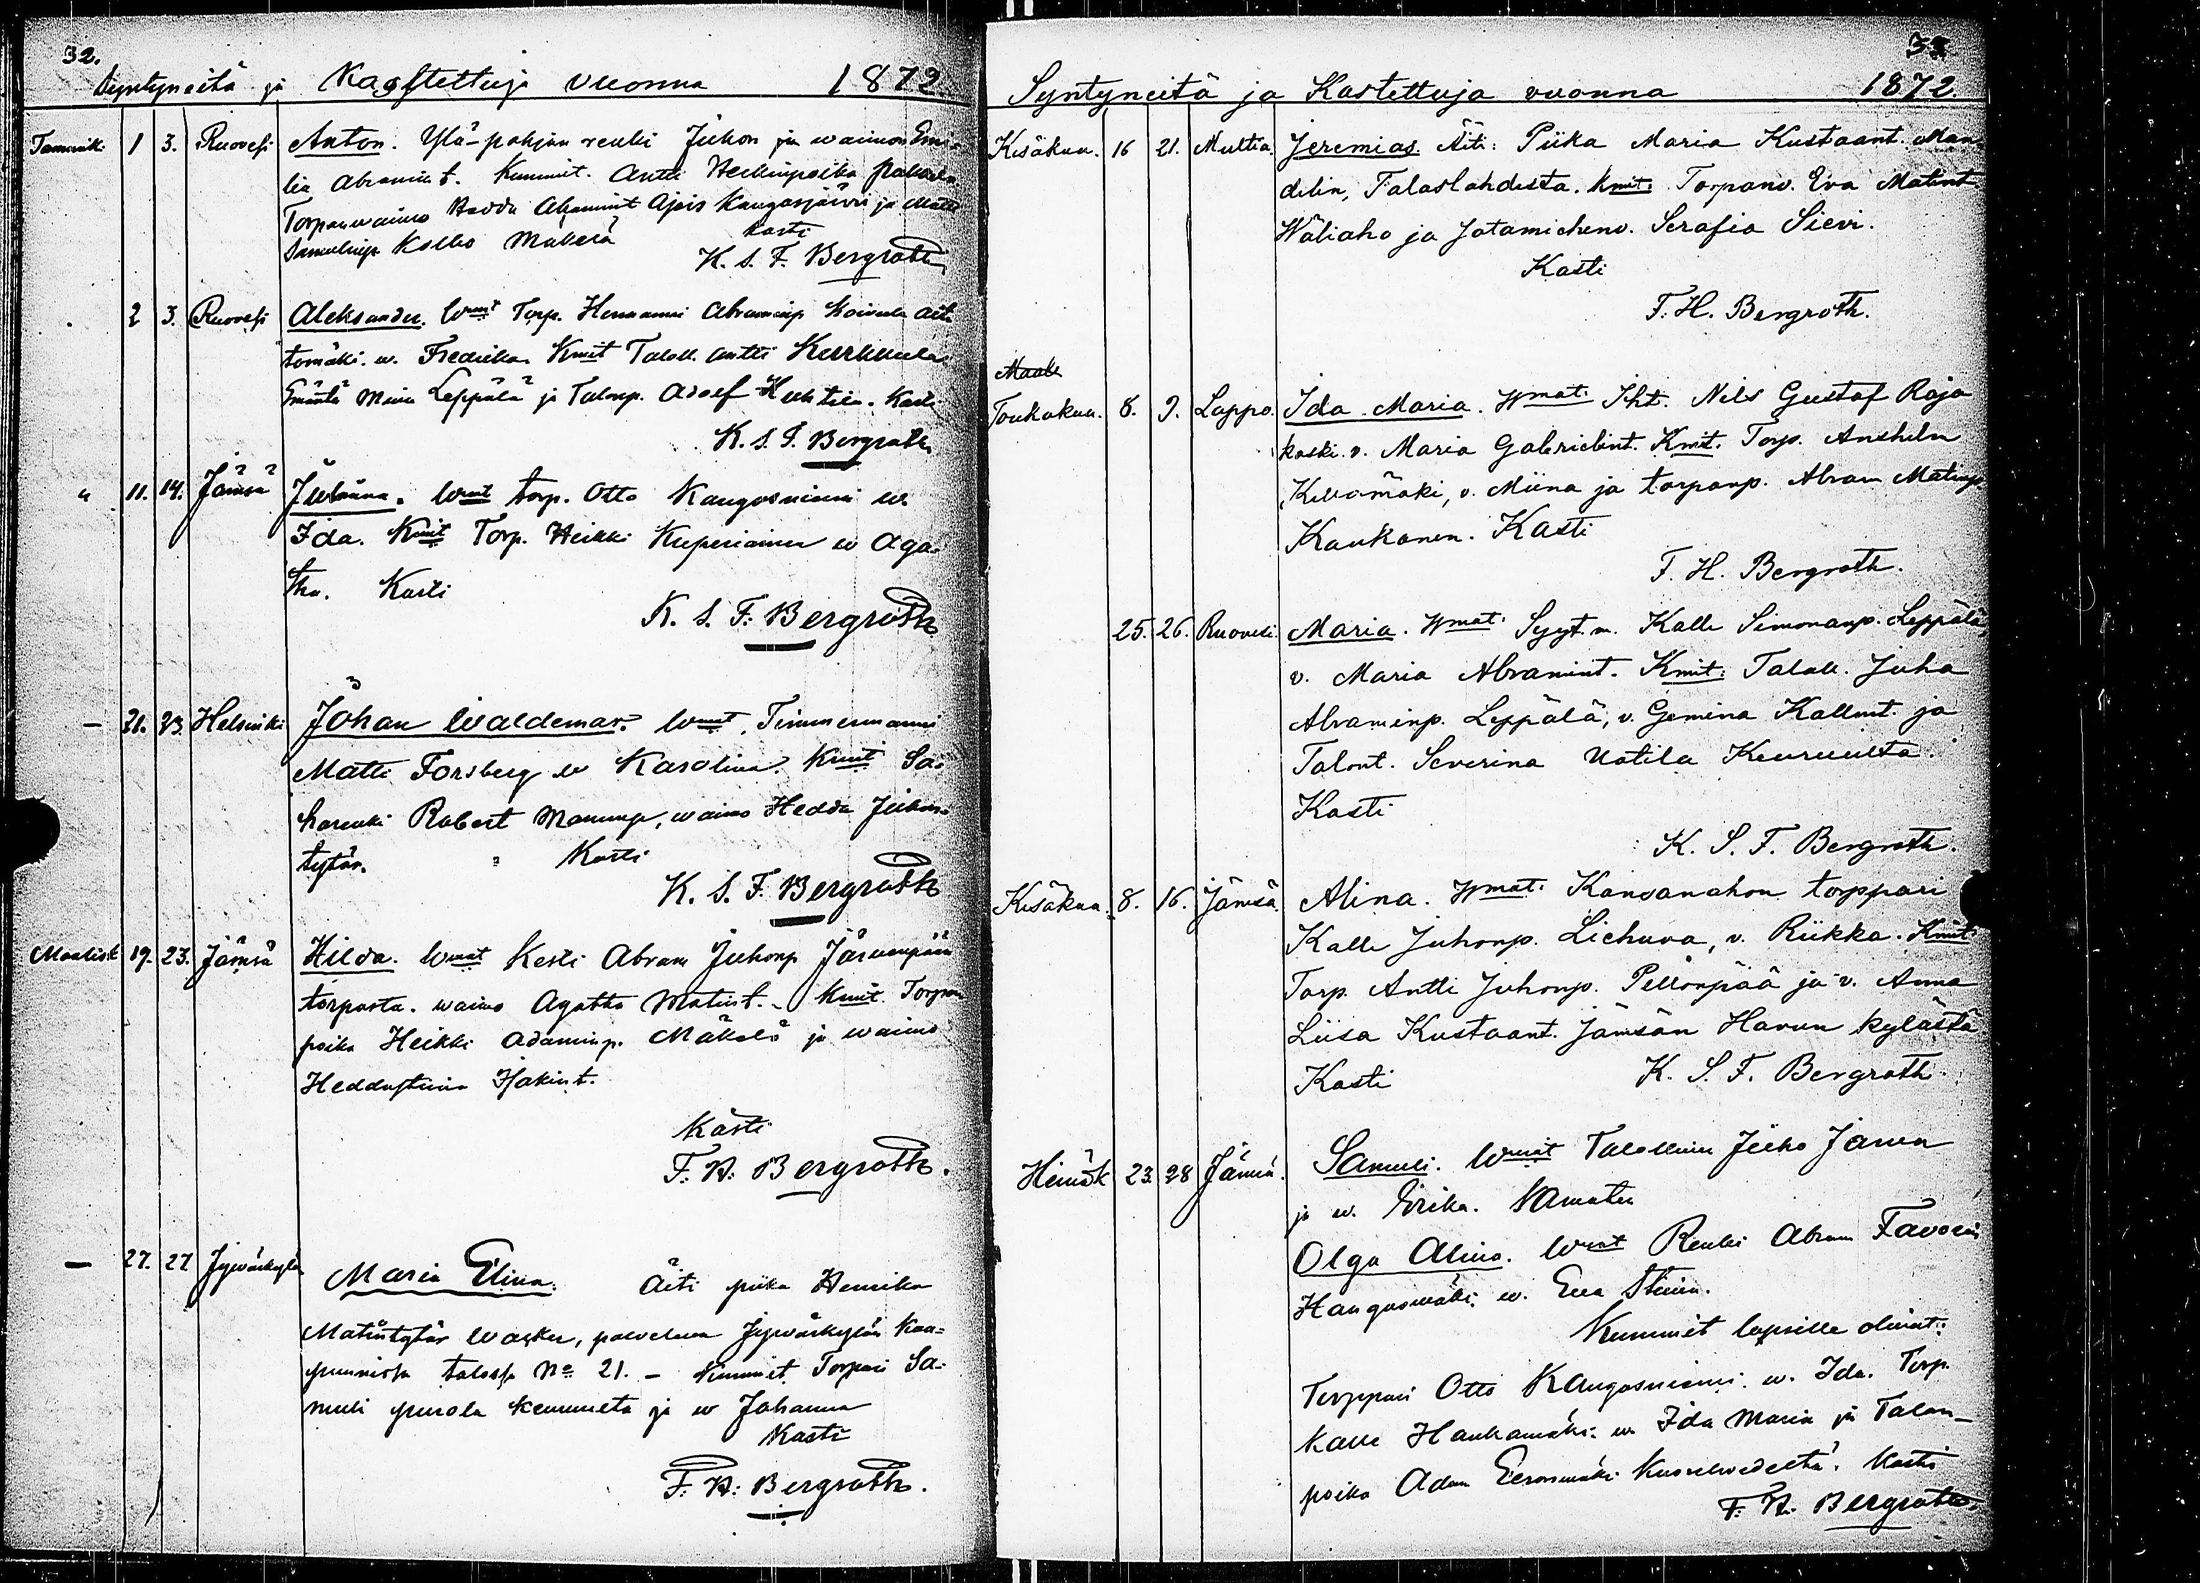 32.
Syntyneitä ja Kastettuja vuonna 1872
Tammik. 1 3. Ruovesi Anton. Ylä-pohjan renki Juhon ja waimon Emi-
lia Abramint. Kummit. Antti Heikinpoika
Torpanwaimo Hedda Abramint Kangasjärwi ja Matti
Samulinp. Kolho Mäkelä Kasti
K. S. F. Bergroth
2 3. Ruovesi Aleksander. Wmat Torp. Hermanni Abraminp Koivula
w. Fredrika Kmit Taloll. Antti Kurkkula
Emäntä Leppälä ja Talonp. Adolf Huhtila. Kasti
K. S. F. Bergroth
" 11. 14. Jämsä Juliäna. Wmat torp. Otto Kangosniemi w.
Ida. Kmit Torp. Heikki w Aga-
tha. Kasti
K. S. F. Bergroth
— 21. 23. Helsinki Johan Waldemar. Wmat. Timmermanni
Matti Forsberg w Karolina. Kmit Sa-
harenki Robert Mananp, waimo Hedda Juhon-
tytär. Kasti
K. S. F. Bergroth
Maalisk 19. 23. Jämsä Hilda. Wmat Kesti Abram Juhonp Järwenpään
torpasta. waimo Agatha Matint. - Kmit. Torpan
poika Heikki Adaminp. Mäkelä ja waimo
Heddastiina Isakint.
Kasti
F. H. Bergroth.
— 27. 27 Jyväskylä Maria Elina. Äiti piika Henrika
Matintytär Wasker, palvelwa Jyväskylän Kau-
punnissa talossa No 21. - Kummit Torpari Sa-
muli Purola Keuruulta ja w Johanna
Kasti
F. H. Bergroth.
Syntyneitä ja Kastettuja vuonna 1872.
Kesäkuu. 16 21. Multia. Jeremias. Äiti: Piika Maria Kustaant. Man-
delin, Talaslahdesta. Kmit: Torpanv. Eva Matint
Wäliaho ja Jatamiehenv. Serafia Sievi.
Kasti
F. H. Bergroth.
Maali
Toukokuu. 8. 9. Lappo. Ida Maria. Wmat. Iht. Nils Gustaf Raja-
koski. v. Maria Gabrielint. Kmit. Torp. Anshelm
Kellomäki, v. Miina ja torpanp. Abram Matinp
Kaukonen. Kasti
F. H. Bergroth.
25. 26. Ruovesi. Maria. Wmat. Syyt. m. Kalle Simonanp. Leppälä,
v. Maria Abramint. Kmit: Taloll. Juha
Abraminp. Leppälä, v. Gemina Kallent. ja
Talont. Severina Uotila Keuruulta.
Kasti
K. S. F. Bergroth.
Kesäkuu. 8. 16. Jämsä. Alina. Wmat. Kansanahon torppari
Kalle Juhonp. Liehuva, v. Riikka. Kmit:
Torp. Antti Juhonp. Pellonpää ja v. Anna
Liisa Kustaant. Jämsän Havun kylästä
Kasti K. S. F. Bergroth.
Heinäk 23. 28 Jämsä. Samuli. Wmat Talollinen Juho Jarwa
ja w. Erika.
Olga Alina. Wmat Renki Abram Favorin
Hangasmäki w. Eva Stiina.
Kummit lapsille olivat:
Torppari Otto Kangosniemi. w. Ida. Torp.
Kalle Hankamäki w. Ida Maria ja Talon-
poika Adam Eerosmäki Kuorehwedeltä. Kasti
F. H. Bergroth.